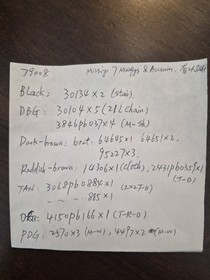 79008 Missing 7 Minifigs & Accessories,
Black: 30134 x 2 (stair)
DBG: 30104 x 5 (21L Chain)
3846pb037 x 4 (M-Sh)
Dark-brown: boat: 64645 x 1 64651 x 2,
95227 x 3.
Reddish-brown: 14306 x 1 (cloth), 2431pb035 x 1
(T-O)
TAN: 3068pb0884 x 1 (2x2T-O)
885 x 1
4150pb166 x 1 (T-R-O)
PDG: 2570 x 3 (M-W), 4497 x 2 (M-W)